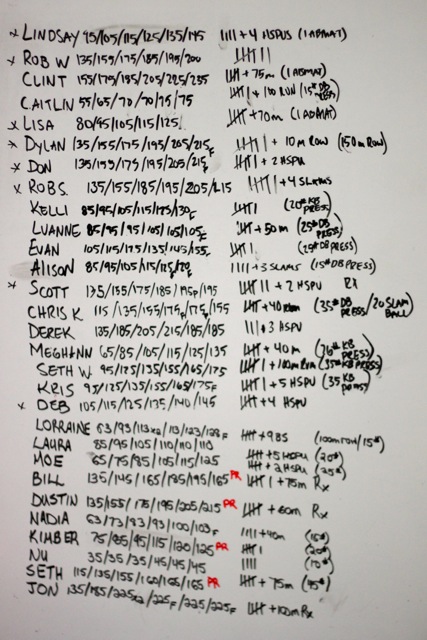 x LINDSAY 95/105/115/125/135/145 |||| + 4 HSPUS (1 ABMAT)
x ROB W 135/155/175/185/195/200 卌 ||
CLINT 155/175/185/205/225/235 卌 + 75m (1 ABMAT)
CAITLIN 55/65/70/70/75/75 卌 | + 100 RUN (15# DB PRESS)
x LISA 80/95/105/115/125 卌 + 70m (1 ABMAT)
x DYLAN 135/155/175/195/205/215F 卌 | + 10m ROW (150m ROW)
x DON 135/155/175/195/205/215F 卌 | + 2 HSPU
x ROB S. 135/155/185/195/205/215 卌 | + 4 SLAMS
KELLI 85/95/105/115/125/130F 卌 | (20# KB PRESS)
LUANNE 85/95/95/105/105/105F 卌 + 50m (25# DB PRESS)
EVAN 105/115/125/135/145/155F 卌 | (25# DB PRESS)
ALISON 85/95/105/115/125/ |||| + 3 SLAMS (15# DB PRESS)
x SCOTT 135/155/175/185/195F/195 卌 || + 2 HSPU RX
CHRIS K 115/135/155/175F/175F/155 卌 + 40 (35# DB PRESS/20 SLAM BALL)
DEREK 135/185/205/215/185/185 ||| + 3 HSPU
MEGHANN 65/85/105/115/125/135 卌 + 40m (26# KB PRESS)
SETH W. 95/125/135/155/165/175 卌 | + 100m RUN (35# KB PRESS)
KRIS 95/125/135/155/165/175F 卌 | + 5 HSPU (35 KB PRESS)
x DEB 105/115/125/135/140/145 卌 + 4 HSPU
LORRAINE 63/93/113x2/113/123/128F 卌 + 9BS (100m row/15#)
LAURA 85/95/105/110/110/110 卌 + 5 HSPU (20#)
MOE 65/75/85/105/115/125 卌 + 2 HSPU (25#)
BILL 135/145/165/185/195/165 PR 卌 | + 75m Rx
DUSTIN 135/155/175/195/205/215 PR 卌 + 60m Rx
NADIA 63/73/83/93/100/103F |||| + 40m (15#)
KIMBER 75/85/95/115/120/125 PR 卌 | (20#)
NU 35/35/35/45/45/45 |||| (10#)
SETH 115/135/155/160/165/165 PR 卌 + 75m (45#)
JON 135/185/225x2/225F/225/225F 卌 + 100m Rx